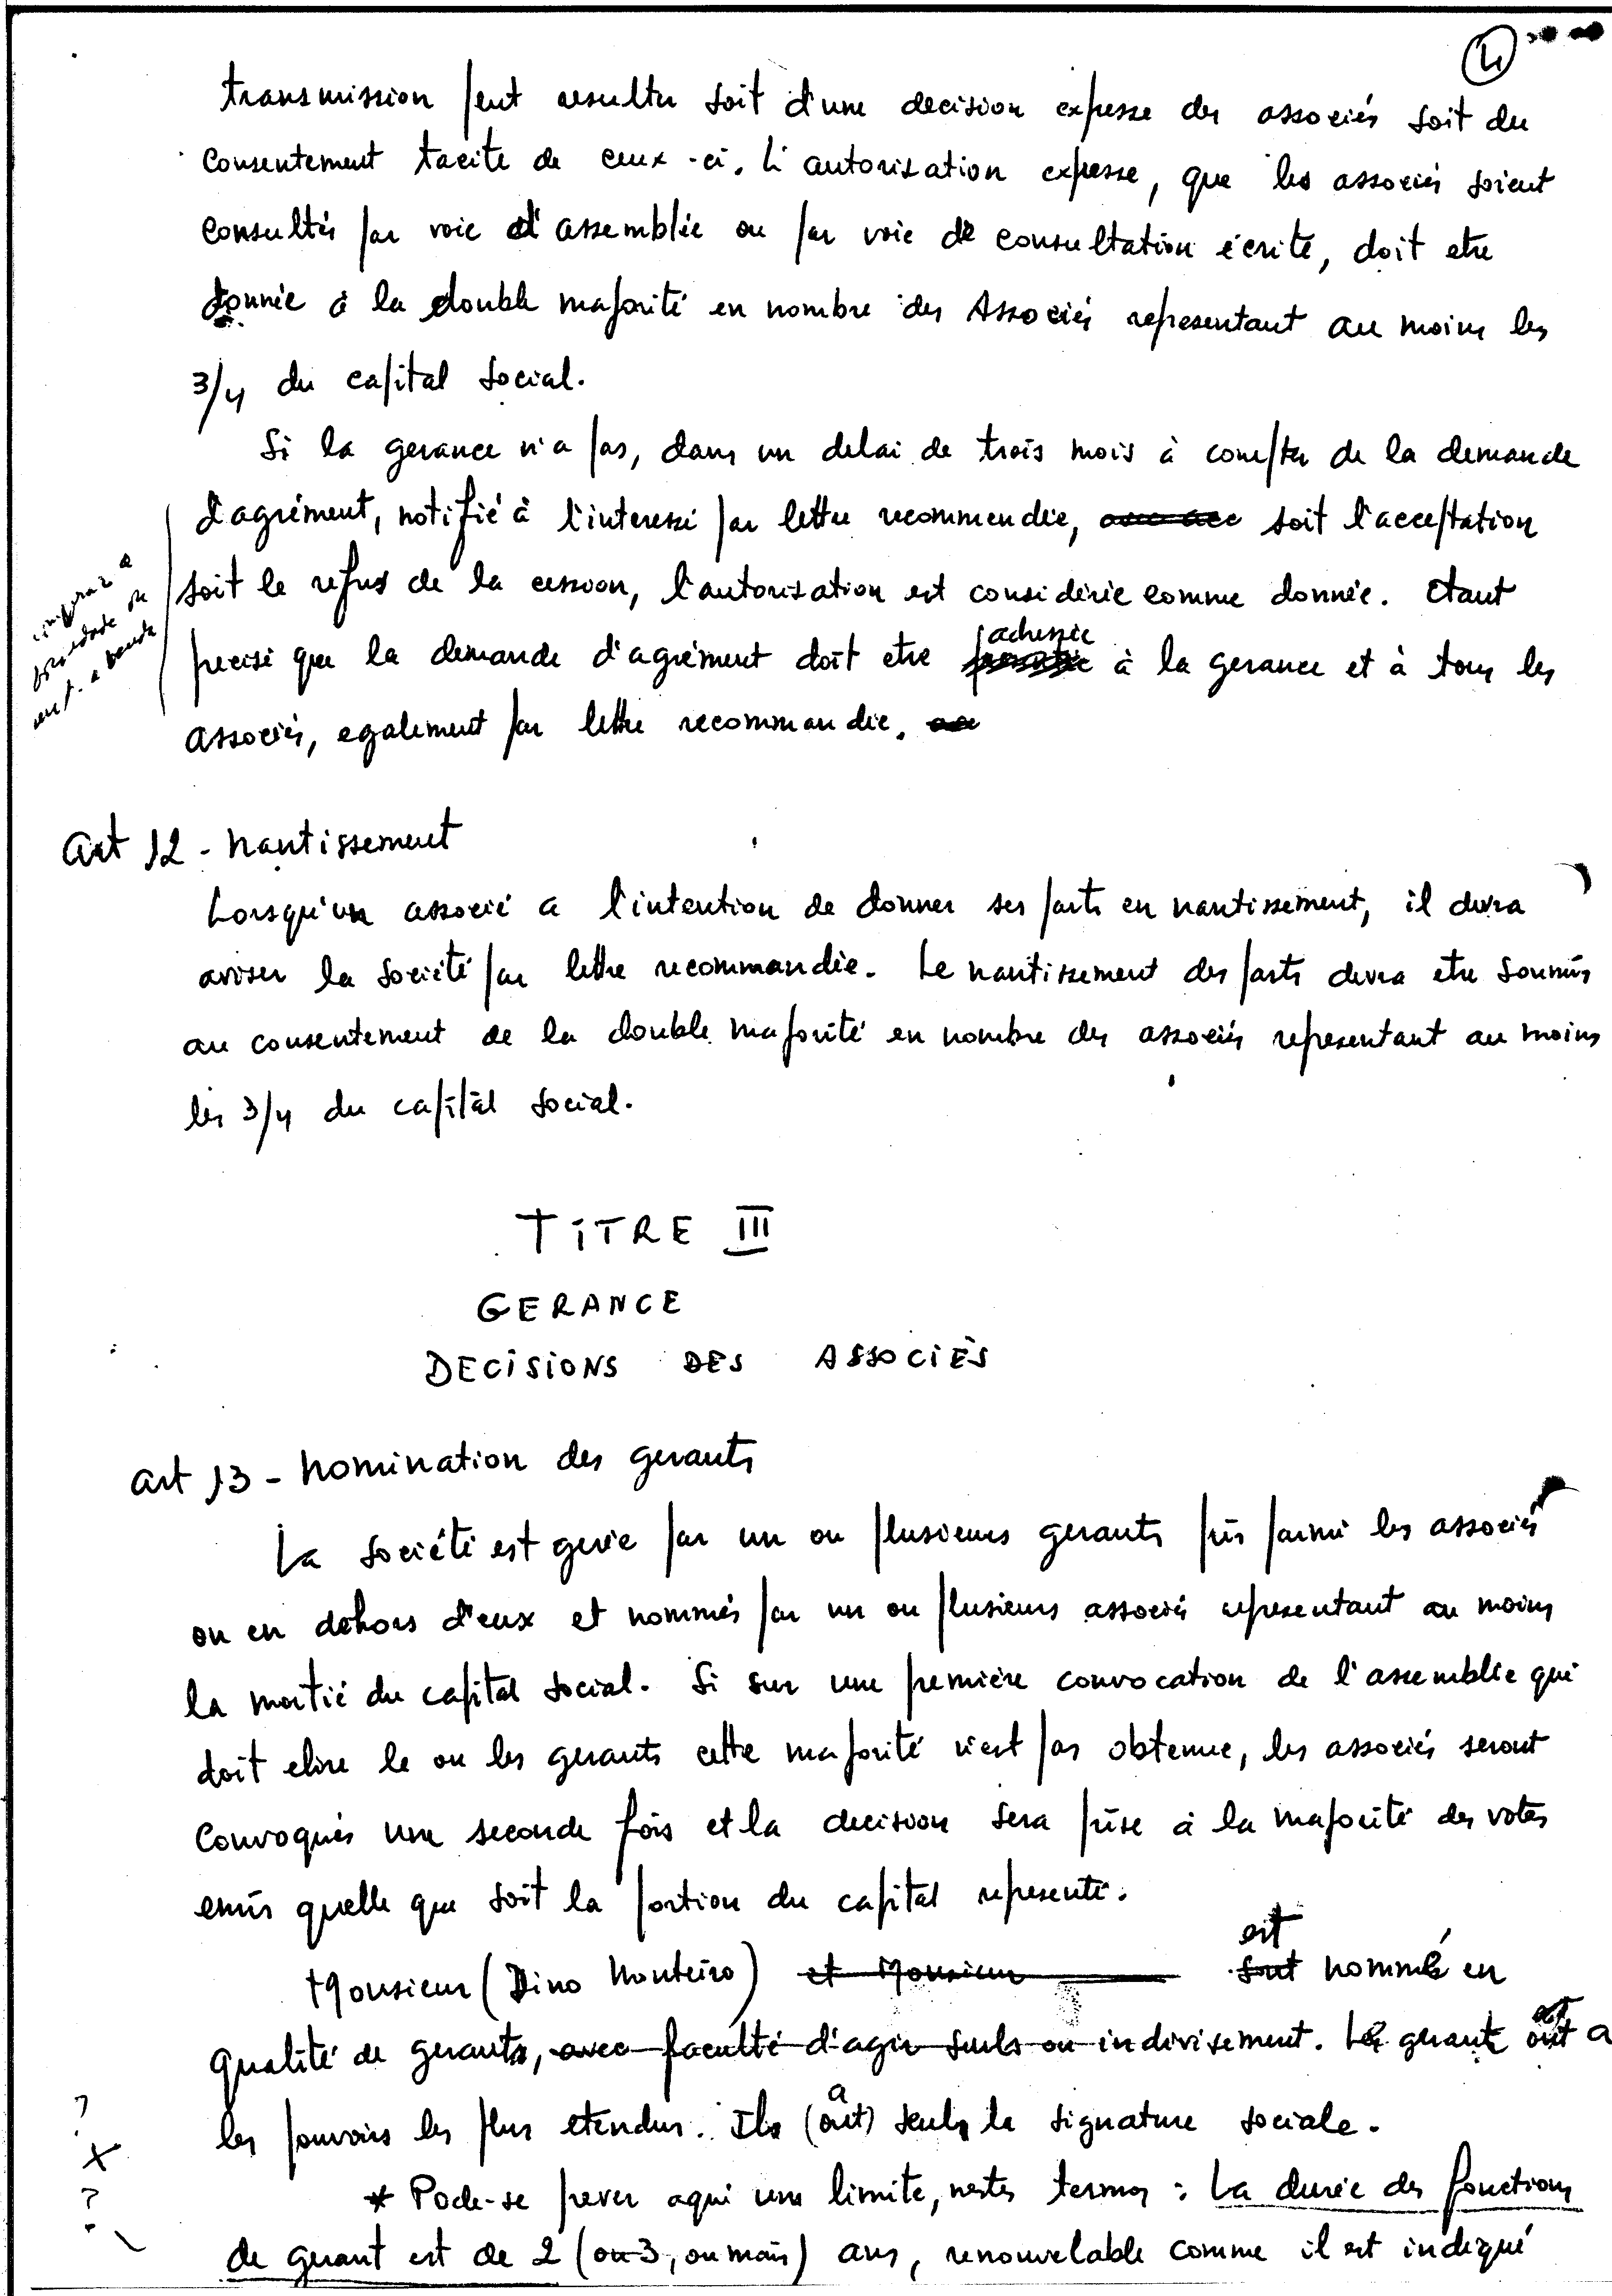 4
transmission peut resulter soit d'une decision expresse des associés soit du
consentement tacite de ceux-ci. L'autorisation expresse, que les associés soient
consultés par voie d'assemblée ou par voie de consultation écrite, doit etre
donnée à la double majorité en nombre des Associés representant au moins les
3/4 du capital social.
Si la gerance n'a pas, dans un delai de trois mois à compter de la demande
d'agrément, notifié à l'interessé par lettre recommendée, soit l'acceptation
soit le refus de la cession, l'autorisation est considérée comme donnée. Etant
adressée
precisé que la demande d'agrément doit etre à la gerance et à tous les
associés, egalement par lettre recommandée.
Art 12 - Nantissement
Lorsqu'un associé a l'intention de donner ses parts en nantissement, il devra
aviser la Société par lettre recommandée. Le nantissement des parts devra etre soumis
au consentement de la double majorité en nombre des associés representant au moins
les 3/4 du capital social.
TITRE III
GERANCE
DECISIONS DES ASSOCIÉS
Art 13 - Nomination des gerants
La Société est gerée par un ou plusieurs gerants pris parmi les associés
ou en dehors d'eux et nommés par un ou plusieurs associés representant au moins
la moitié du capital social. Si sur une première convocation de l'assemblée qui
doit elire le ou les gerants cette majorité n'est pas obtenue, les associés seront
convoqués une seconde fois et la decision sera prise à la majorité des votes
emis quelle que soit la portion du capital representé.
est
Monsieur (Dino Monteiro) et Monsieur sont nommé en
qualité de gerants, avec faculté d'agir seuls ou indivisement. Le gerant ont a
a
les pouvoirs les plus etendus. Ils (ont) seuls la signature sociale.
?
X
?
* Pode-se prever aqui um limite, nestes termos : La durée des fonctions
de gerant est de 2 (ou 3, ou mais) ans, renouvelable comme il est indiqué